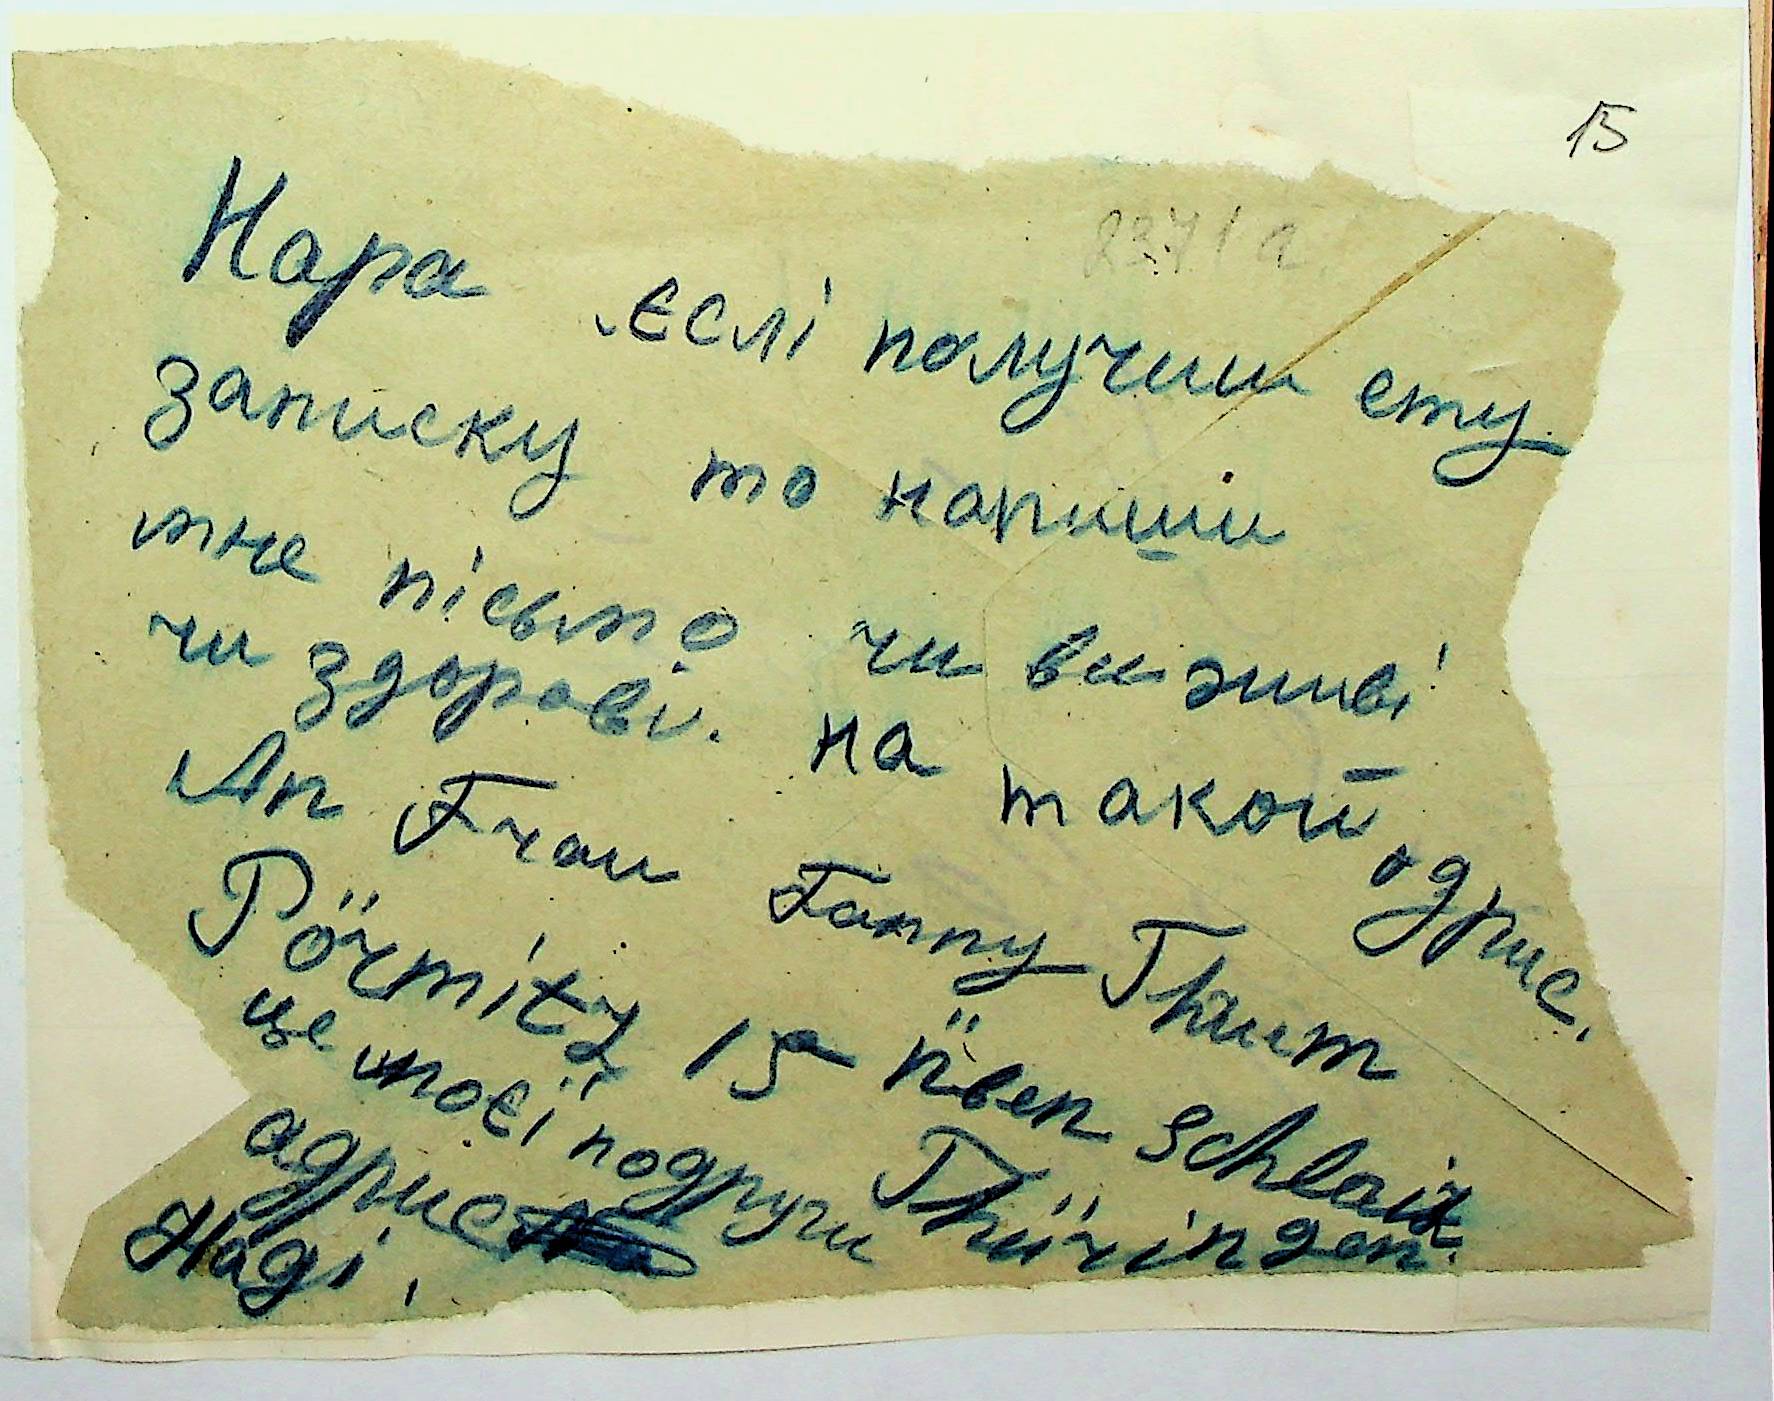 15
2371 а.
Нара єслі получиш ету
записку то напиши
мне пісьмо чи ви живі
чи здорові. на такой адрис.
An Frau Fanny Thum
Pörmitz 15a üben schlaiz
це моєї подруги Thüringen.
адрис
Наді.